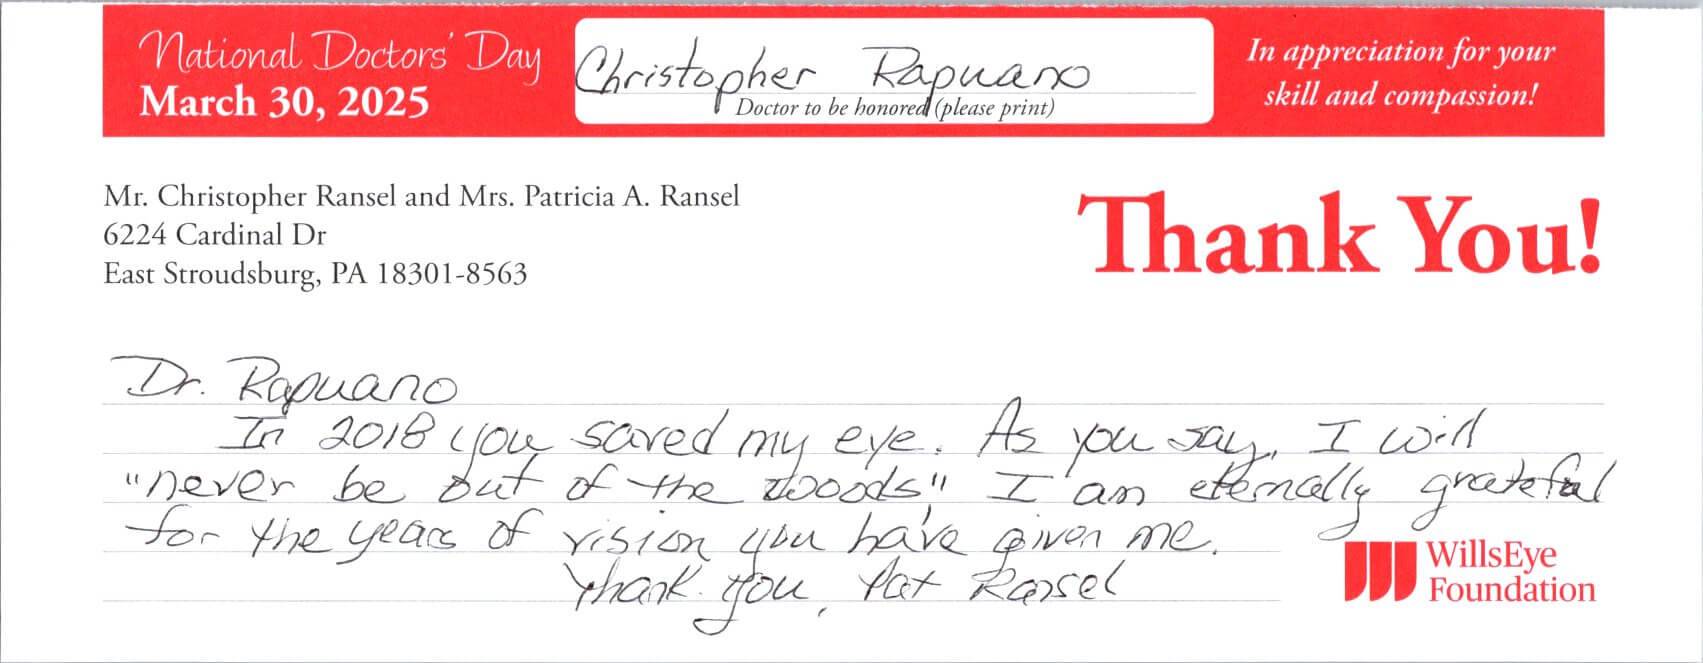 National Doctors' Day
March 30, 2025
Christopher Rapuano
Doctor to be honored (please print)
In appreciation for your
skill and compassion!
Mr. Christopher Ransel and Mrs. Patricia A. Ransel
6224 Cardinal Dr
East Stroudsburg, PA 18301-8563
Thank You!
Dr. Rapuano
In 2018 you saved my eye. As you say, I will
"never be out of the woods" I am eternally grateful
for the years of vision you have given me.
Thank you, Pat Ransel
WillsEye
Foundation